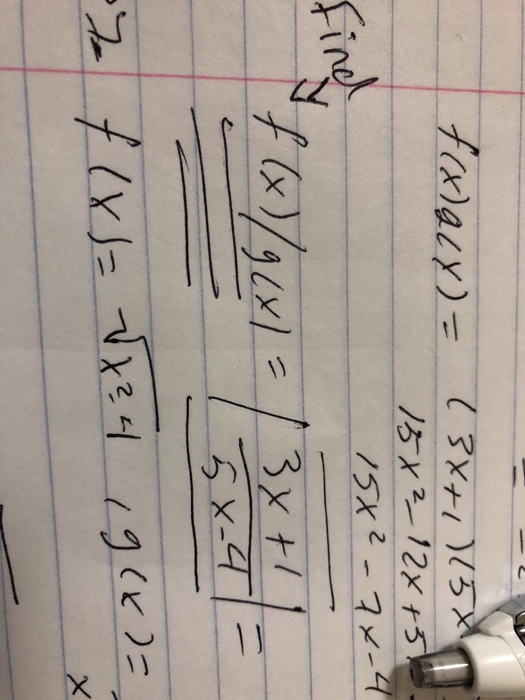 f(x)g(x) = (3x+1)(5x
15x² - 12x + 5
15x² - 7x - 4
find
f(x)/g(x) = | 3x+1 / 5x-4 | =
f(x) = √x²-1 , g(x) =
x